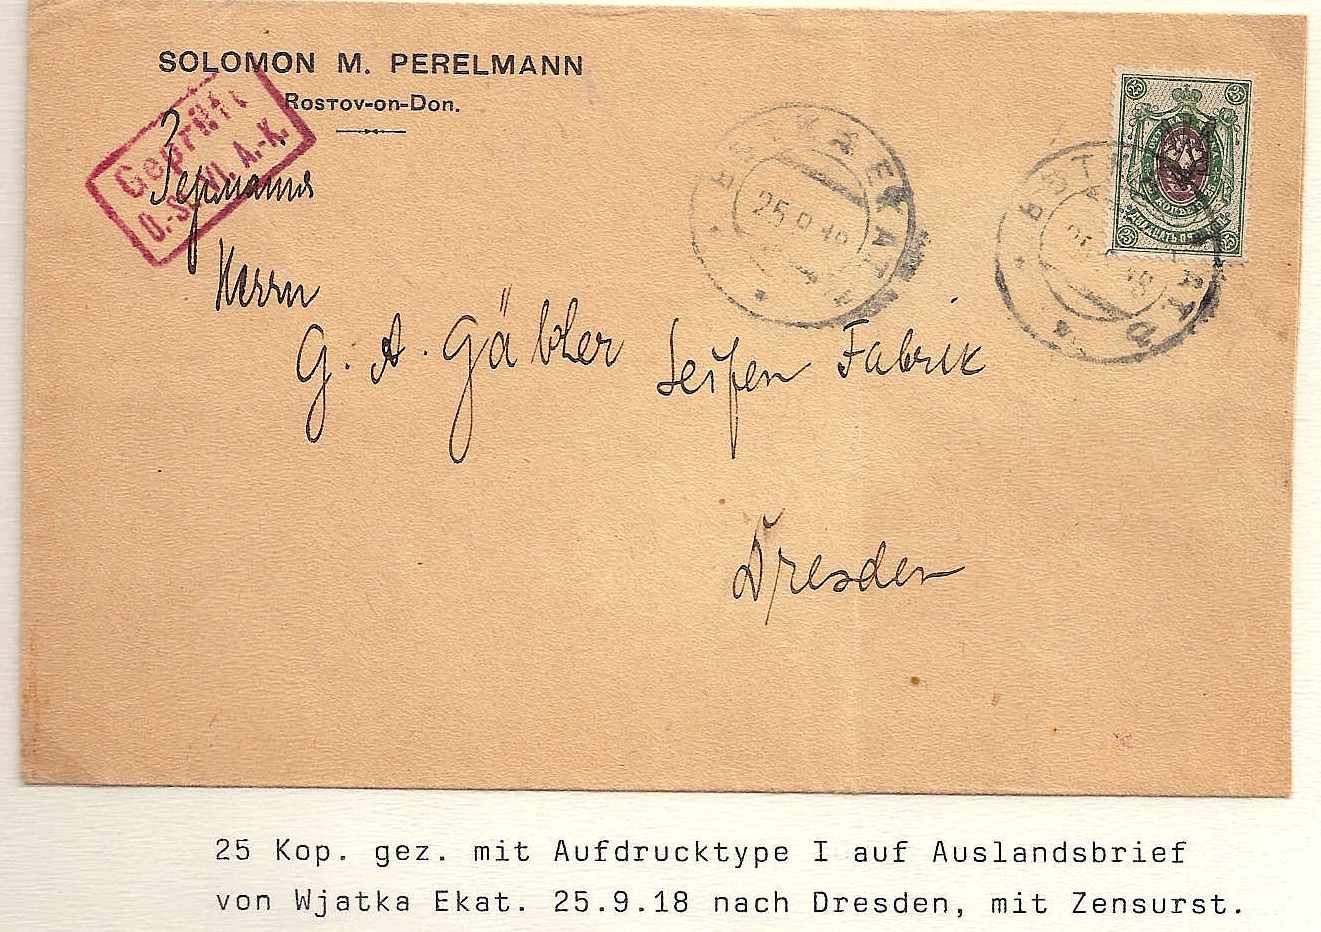 SOLOMON M. PERELMANN
Rostov-on-Don.
Geprüft
VI. A.-K.
Германия
Herrn
G. A. Gäbler Seifen Fabrik
Dresden
25 Kop. gez. mit Aufdrucktype I auf Auslandsbrief
von Wjatka Ekat. 25.9.18 nach Dresden, mit Zensurst.